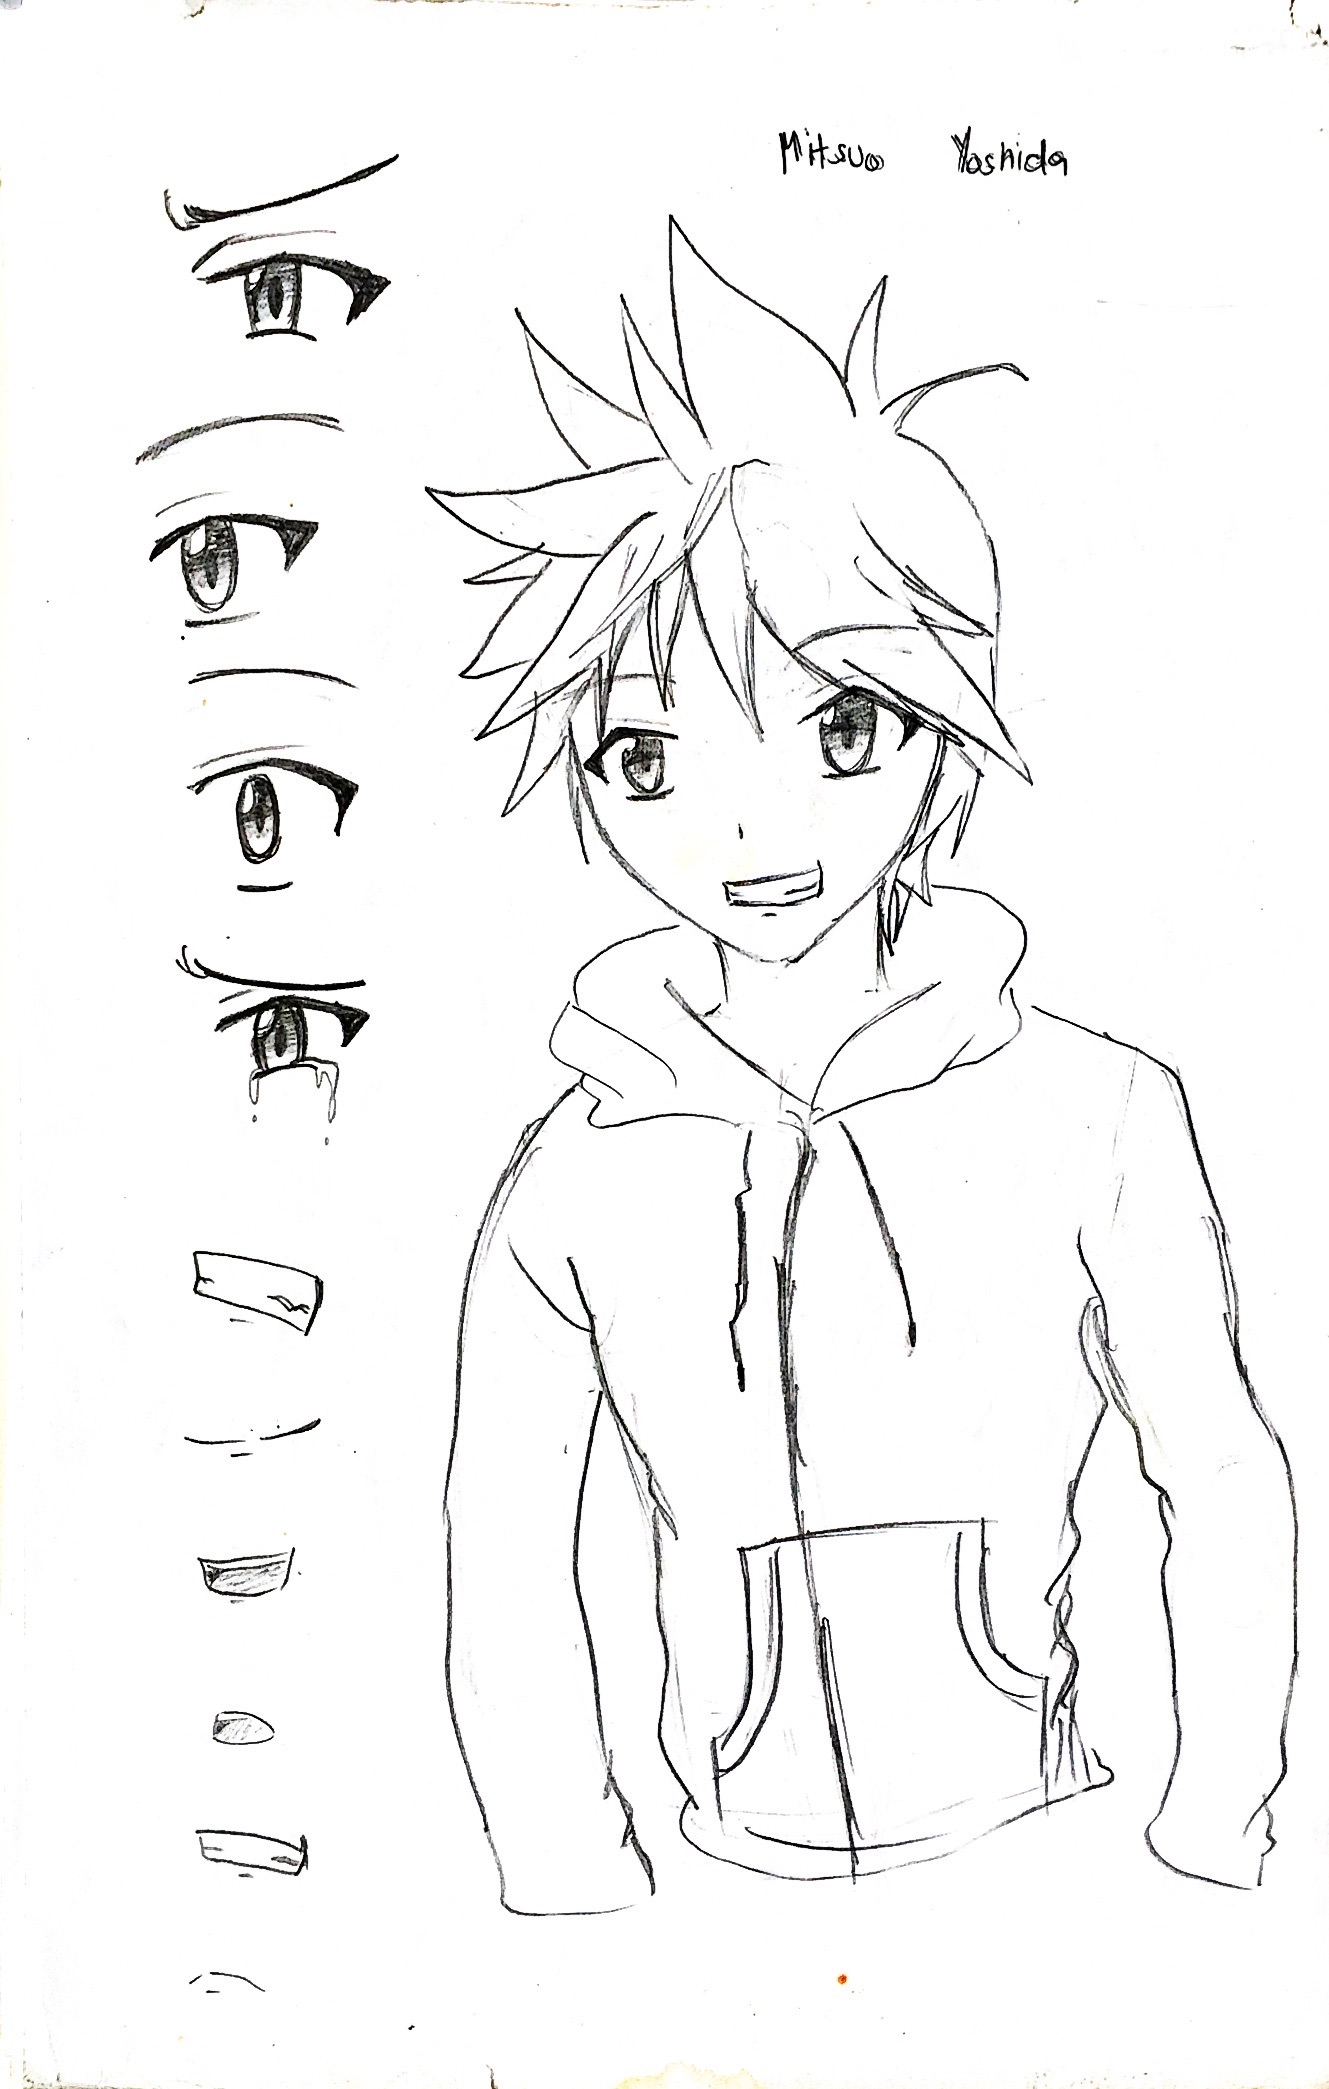 Mitsuo Yoshida